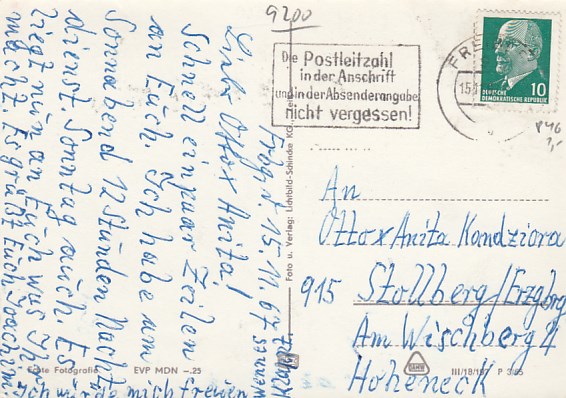 9200
Die Postleitzahl
in der Anschrift
und in der Absenderangabe
nicht vergessen!
FR
15.1
DEUTSCHE
DEMOKRATISCHE REPUBLIK
10
15.11.67
Liebe Otto x Anita!
Schnell ein paar Zeilen
an Euch. Ich habe am
Sonnabend 12 Stunden Nacht
dienst. Sonntag auch. Es
liegt nun an Euch was Ihr
macht. Es grüßt Euch Joachim.
Ich würde mich freuen
An
Otto x Anita Kondziora
915 Stollberg/Erzgbg
Am Wischberg 4
Hoheneck
Foto u. Verlag: Lichtbild-Schincke KG,
Echte Fotografie EVP MDN -.25
III/18/197 P 3/65